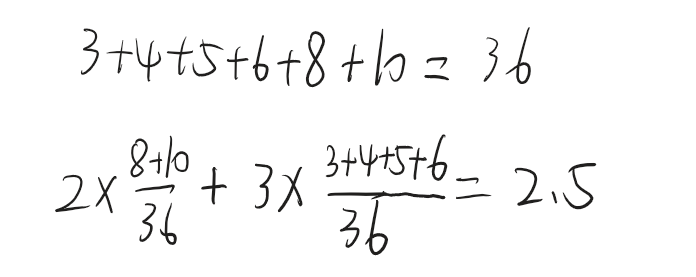 3+4+5+6+8+10=36
2×\frac{8+10}{36}+3×\frac{3+4+5+6}{36}=2.5